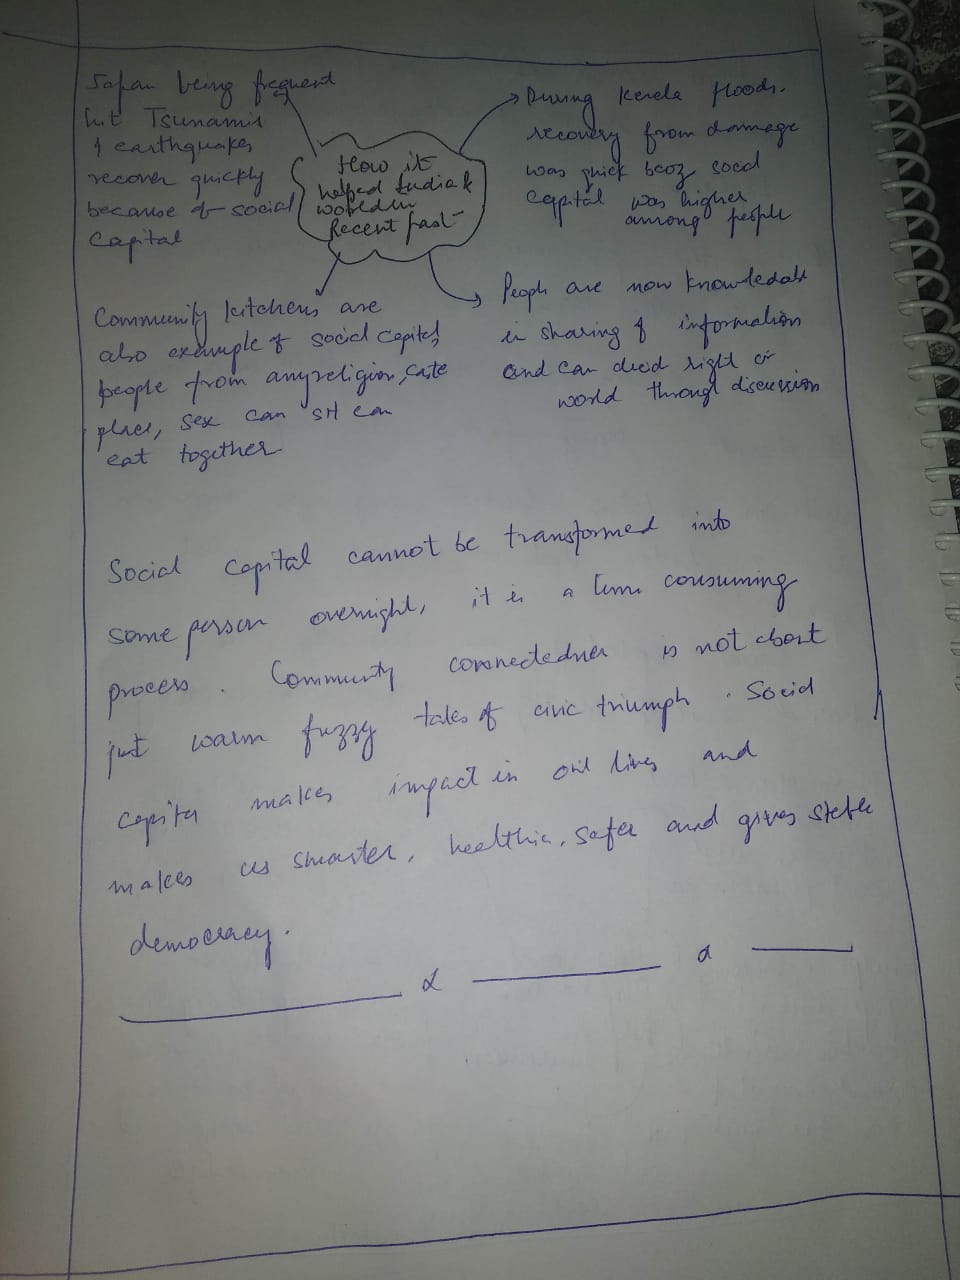 Japan being frequent
hit Tsunamis
& earthquakes
recover quickly
because of social
Capital
How it
helped India &
world in
Recent past
During Kerela floods.
recovery from damage
was quick becoz socal
capital was higher
among people
Community kitchens are
also example of social capital,
people from any religion, caste
place, sex can sit can
eat together
People are now knowledable
in sharing of information
and can decid right or
world through discussion
Social capital cannot be transformed into
some person overnight, it is a time consuming
process. Community connectedness is not about
just warm fuzzy tales of civic triumph. Social
capital makes impact in our lives and
makes us smarter, healthier, safer and gives stable
democracy.